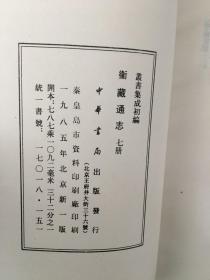 叢書集成初編
衞藏通志 七册
中華書局出版發行
(北京王府井大街三十六號)
秦皇島市資料印刷廠印刷
一九八五年北京新一版
開本:七八七乘一〇九二毫米 三十二分之一
統一書號:一七〇一八·一五一